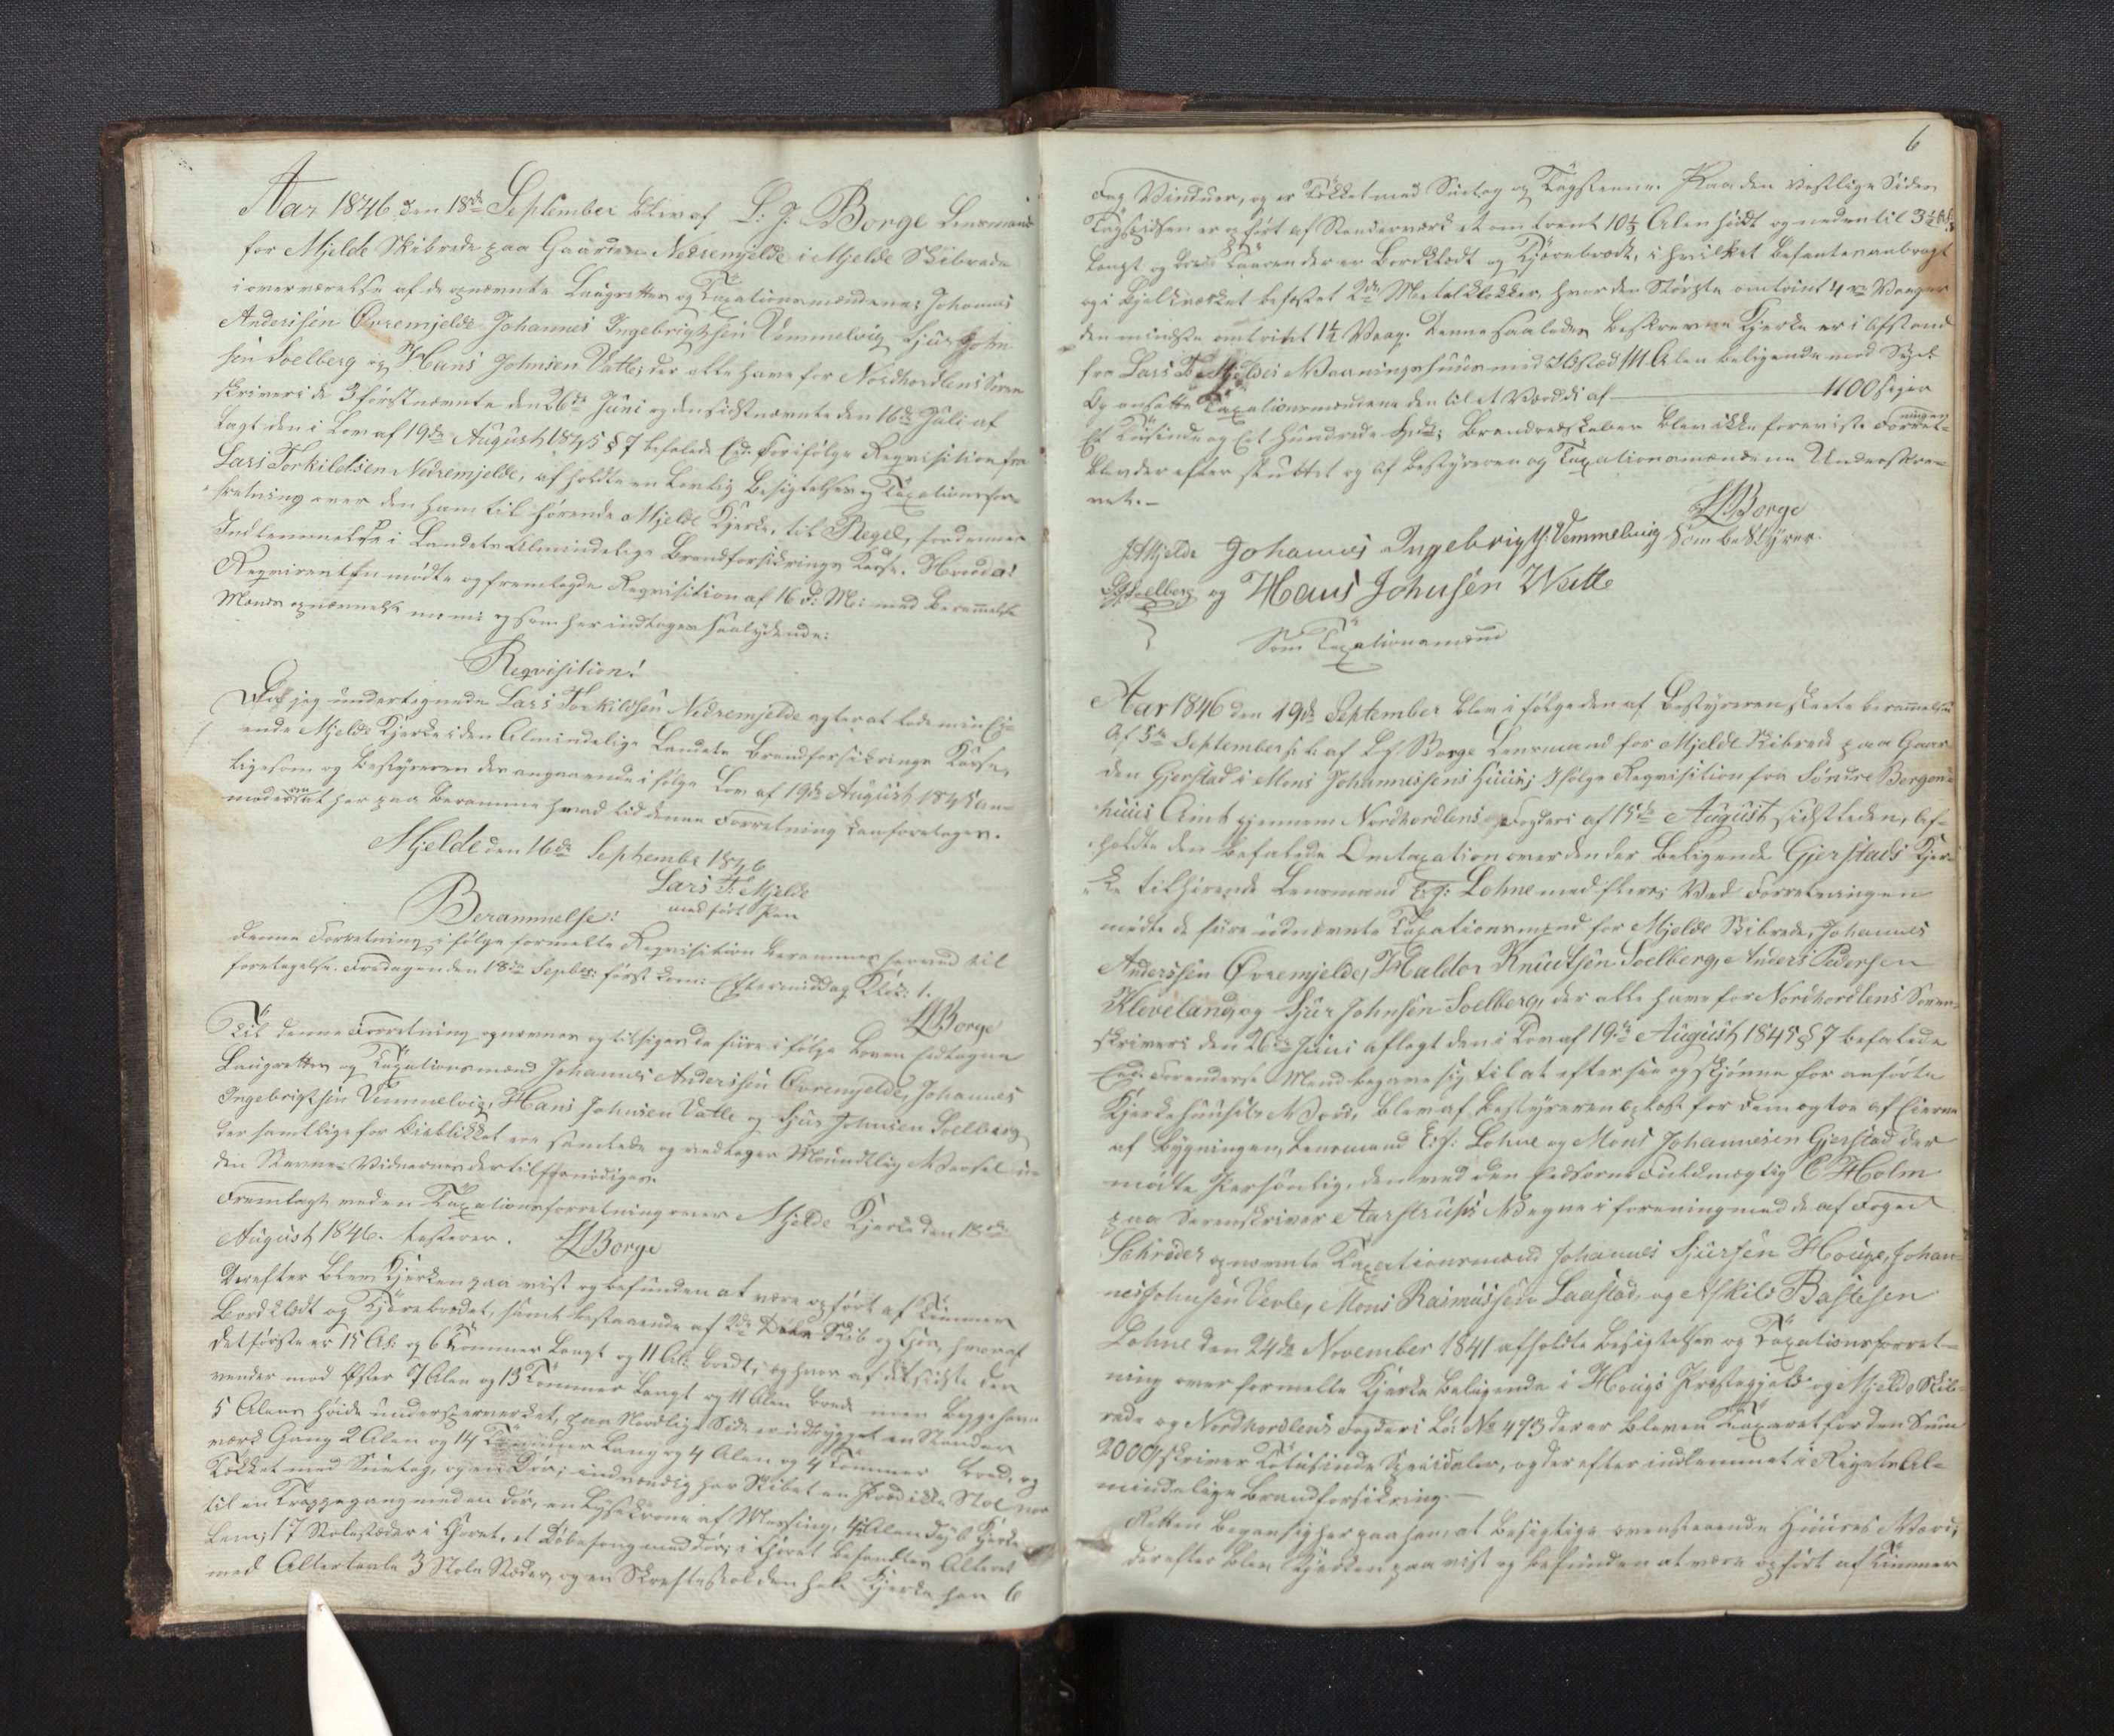 Aar 1846 den 18de September blev af L: J: Borge Lensmand
for Mjelde Skibrede paa Gaarden Nedremjelde i Mjelde Skibrede
i overværelse af de opnævnte Laugrettes og Taxationsmændene: Johannes
Anderssen Øvremjelde Johannes Ingebrigtsen Vemmelvig Sjur John
sen Soelberg og Hans Johnsen Vatle, der alle have for Nordhordlens Soren
skriveri de 3 førstnævnte den 26de Juni og den sidstnævnte den 16de Juli af
lagt den i Lov af 19de August 1845 § 7 befalede Eed. For ifølge Reqvisition fra
Lars Torkildsen Nedremjelde, afholdte en Lovlig Besigtelses og Taxationsfor-
retning over den ham tilhørende Mjelde Kjerke, til
Indlemmelse i Landets Almindelige Brandforsikrings Kasse. Hvorda!
Reqvirenten mødte og fremlagde Reqvisition af 16 d: M: med Berammelse
Mænds opnævnelse m: m: og som her indtages saalydende:
Reqvisition!
Da jeg undertegnede Lars Torkildsen Nedremjelde agter at lade min Ei-
ende Mjelde Kjerke i den Almindelige Landets Brandforsikrings Kasse,
ligesom og Bestyreren des angaaende i følge Lov af 19de August 1845 an-
modes om at her paa beramme hvad tid denne Forretning kan foretages.
Mjelde den 16de Septembr 1846
Lars T: Mjelde
med ført Pen
Berammelse!
Denne Forretning ifølge formelte Reqvisition berammes herved til
foretagelse Fredagen den 18de Septbr: først kom: Eftermiddag Klok: 1.
LBorge
Til denne Forretning opnævnes og tilsiges de fiire i følge Loven Eedtagne
Laugrettes og Taxationsmænd Johannes Anderssen Øvremjelde, Johannes
Ingebrigtsen Vemmelvig, Hans Johnsen Vatle og Sjur Johnsen Soelberg
der samtlige for Øieblikket ere samlede og vedtager Moundtlig Varsel u-
den Stevne-Vidnernes dertil fornødiges.
Fremlagt ved en Taxationsforretning over Mjelde Kjerke den 18de
August 1846. testerer. LBorge
Derefter blev Kjerken paa vist og befunden at være opført af Timmer
Bordklædt og Tjørebrædet, samt bestaaende af 2de Dele Skib og Chor, hvoraf
det første er 15 Al: og 6 Tommer Langt og 11 Al: bredt, og hvor af det sidste der
vender mod Øster 7 Alen og 13 Tommer Langt og 11 Alen bred men begge have
5 Alens høide under sperverket, paa Nordlige Side er udbygget en Stander
værk Gang 2 Alen og 14 Tommer Lang og 4 Alen og 4 Tommer bred, og
Tækket med Suetag, og en Dør; indvendig har Skibet en Prædikke Stol
til en Trappegang med en dør, en Lysekrone af Messing, Alen Kjerke
Lem; 17 Stolestæder i Choret, et Døbefong med dør; i Choret befandtes Alteret
med Altertavle 3 Stole Stæder, og en Skriftestol den hele Kjerke har 6
6
Fag Vinduer, og er Tækket med Suetag og Tagsteene. Paa den vestlige Siden
er opført af Standerværk et omtrent 10½ Alen høidt og neden til 3½ Al:
langt og bred Taaren der er Bordklædt og Tjørebrædt, i hvilket befantes anbragt
og i Bjelkværket befæstet 2de Metalklokker, hvor den Største omtrint 4re Vaager
den mindste omtrint 1½ Vaag. Denne saaledes beskrevne Kjerke er i Afstand
fra Lars T. Mjeldes Vaaningshuus med Ildsted 111 Alen beligende mod Syd.
Og ansatte Taxationsmændene den til et Værdi af 1100 siger
Et Tusinde og Eet Hundrede Spd; Brandredskaber blev ikke foreviist. Forret-
ningen
blev derefter sluttet og af Bestyreren og Taxationsmændene Underskre-
vet.-
LBorge
som bestyrer.
J A Mjelde Johannes Ingebrigts: Vemmelvig
S J Soelberg og Hans Johnsen Watle
Som Taxationsmænd
Aar 1846 den 19de September blev i følge den af Bestyreren skeete berammelse
Af 5te September s. k. af L J Borge Lensmand for Mjelde Skibrede paa Gaar
den Gjerstad i Mons Johannessens Huus, Ifølge Reqvisition fra Søndre Bergen-
huus Amt gjennem Nordhordlens Fogderi af 15de August sidstleden, af-
holdte den befalede Omtaxation over den der beligende Gjerstads Kjer-
ke tilhørende Lensmand E: J: Lohne med flere; Ved Forretningen
mødte de fiire udnævnte Taxationsmænd for Mjelde Skibrede, Johannes
Anderssen Øvremjelde, Haldor Knudtsen Soelberg, Anders Pedersen
Kleveland, og Sjur Johnsen Soelberg, der alle have for Nordhordlens Soren-
skriveri den 26de Juni aflagt den i Lov af 19de August 1845 § 7 befalede
Eed. Forend disse Mænd begave sig til at eftersee og skjønne for anførte
Kjerkehuusets Værd, blev af Bestyreren oplæst for dem og toe af Eierne
af Bygningen, Lensmand E: J: Lohne og Mons Johannesen Gjerstad der
mødte Personlig, den ved den Eedsorne Fuldmægtig C Holm
paa Sorenskriver Aarstrups Vegne i forening med de af Foged
Schrøder opnævnte Taxationsmænd Johannes Sjursen Houge, Johan-
nes Johnsen Vevle, Mons Rasmussen Laastad, og Askild Bastesen
Lohne den 24de November 1841 afholdte Besigtelses og Taxationsforret-
ning over formelte Kjerke beligende i Hougs Prestegjeld og Mjelde Skib-
rede og Nordhordlens Fogderi Lø: No 473 der er bleven Taxeret for den Sum
2000 skriver Totusinde Speciedaler, og der efter indlemmet i Rigets Al-
mindelige Brandforsikring.-
Retten begav sig her paa hen at besigtige ovenstaaende Huuses Værd;
derefter blev Kjerken paa vist og befunden at være opført af Timmer